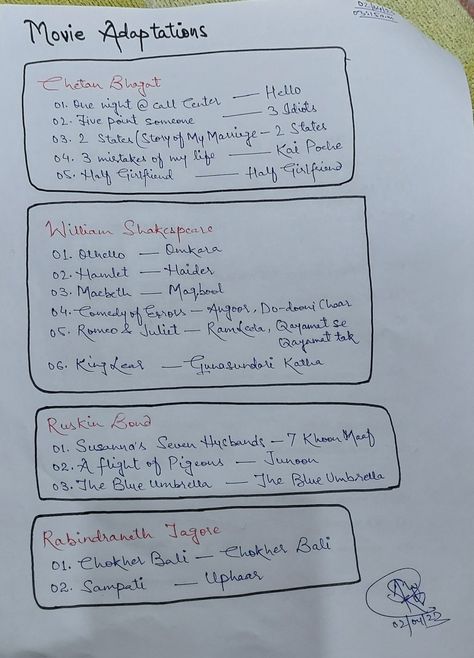 Movie Adaptations
Chetan Bhagat
01. One night @ call Center — Hello
02. Five point someone — 3 Idiots
03. 2 States (Story of My Marriage – 2 States
04. 3 mistakes of my life — Kai Poche
05. Half Girlfriend — Half Girlfriend
William Shakespeare
01. Othello — Omkara
02. Hamlet — Haider
03. Macbeth — Maqbool
04. Comedy of Errors – Angoor, Do-dooni Chaar
05. Romeo & Juliet – RamLeela, Qayamat se
Qayamat tak
06. King Lear — Gunasundari Katha
Ruskin Bond
01. Susanna's Seven Husbands – 7 Khoon Maaf
02. A flight of Pigeons — Junoon
03. The Blue Umbrella — The Blue Umbrella
Rabindranath Tagore
01. Chokher Bali — Chokher Bali
02. Sampati — Uphaar
02/04/22